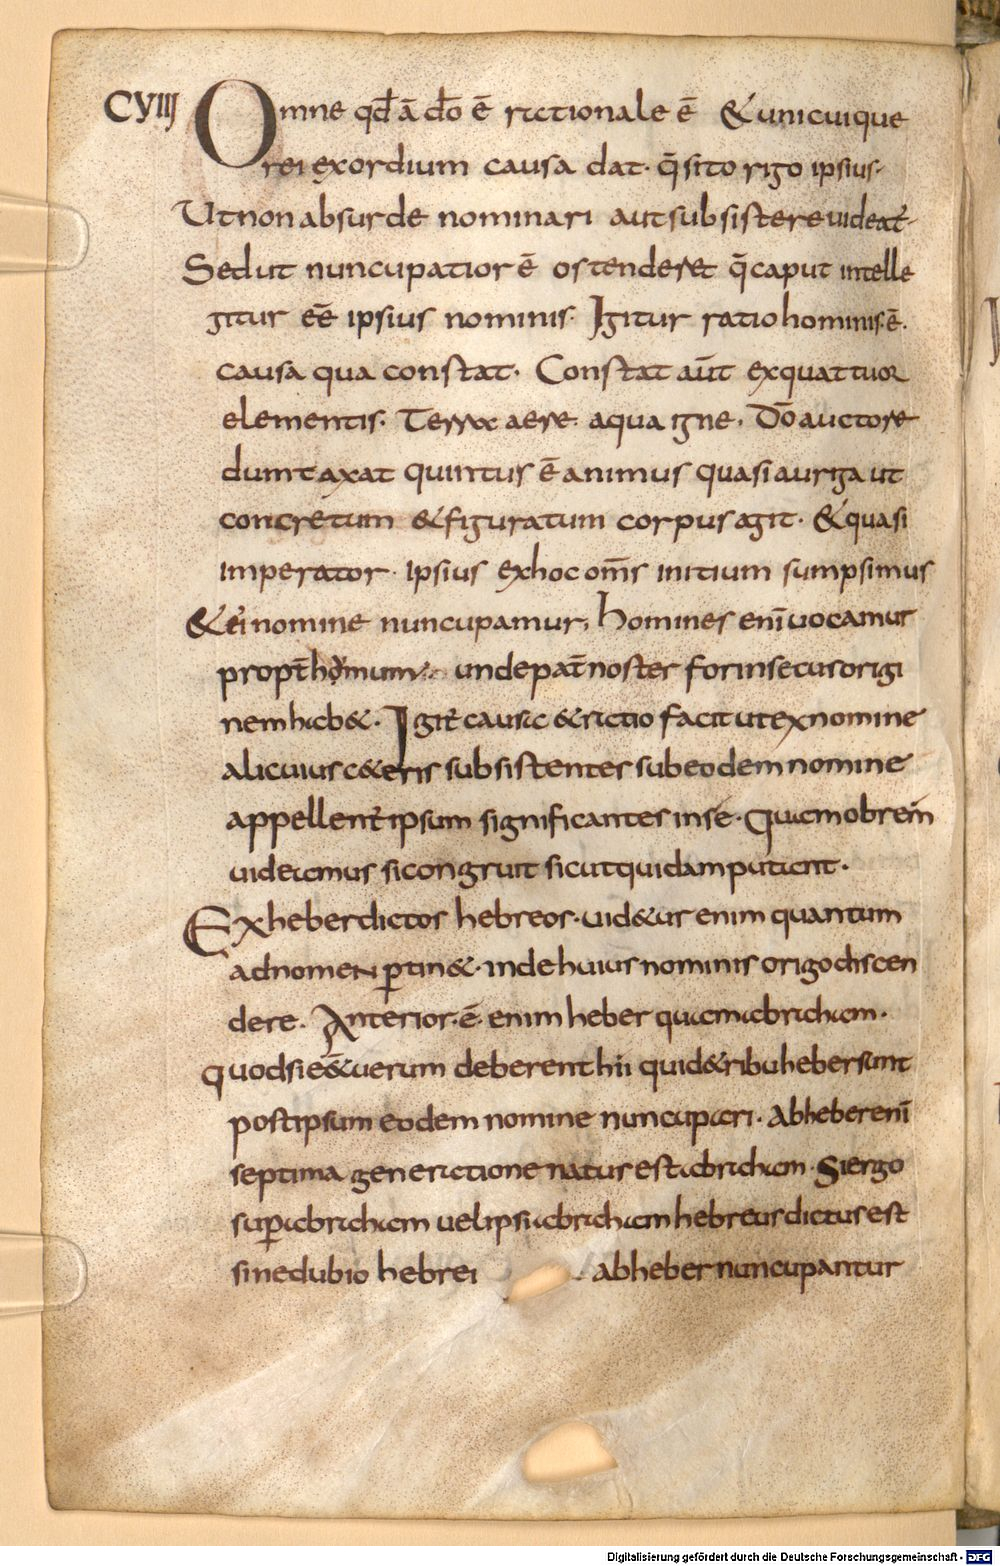 CVIII Omne qđ ā dō ē rationale ē & unicuique
rei exordium causa dat· q̄ sit origo ipsius·
Ut non absurde nominari aut subsistere uideat̄·
Sed ut nuncupatior ē ostenderet q̄ caput intelle
gitur eē ipsius nominis· Igitur ratio hominis·ē·
causa qua constat· Constat aūt ex quattuor
elementis· Terra aere· aqua igne· Dō auctore
dumtaxat quintus ē animus quasi auriga ut
concretum & figuratum corpus agit· & quasi
imperator· ipsius ex hoc om̄s initium sumpsimus
& ei nomine nuncupamur, homines enī uocamur
propt̄ homum undepat̄ noster forinsecus origi
nem hab&· Igit̄ causa & ratio facit ut ex nomine
alicuius c&eris subsistentes sub eodem nomine
appellent̄ ipsum significantes in se· Quamobrem
uideamus si congruit sicut quidam putant·
Ex heber dictos hebreos· uid&ur enim quantum
ad nomen ꝑtin&· inde huius nominis origo discen
dere· Anterior·ē· enim heber quam abraham·
quod si e&̄ uerum deberent hii quid& ribu heber sunt
post ipsum eodem nomine nuncupari· Ab heber enī
septima generatione natus est abraham· Si ergo
suꝑ abraham uel ipsi abraham hebreus dictus est
sine dubio hebrei ab heber nuncupantur
Digitalisierung gefördert durch die Deutsche Forschungsgemeinschaft - DFG